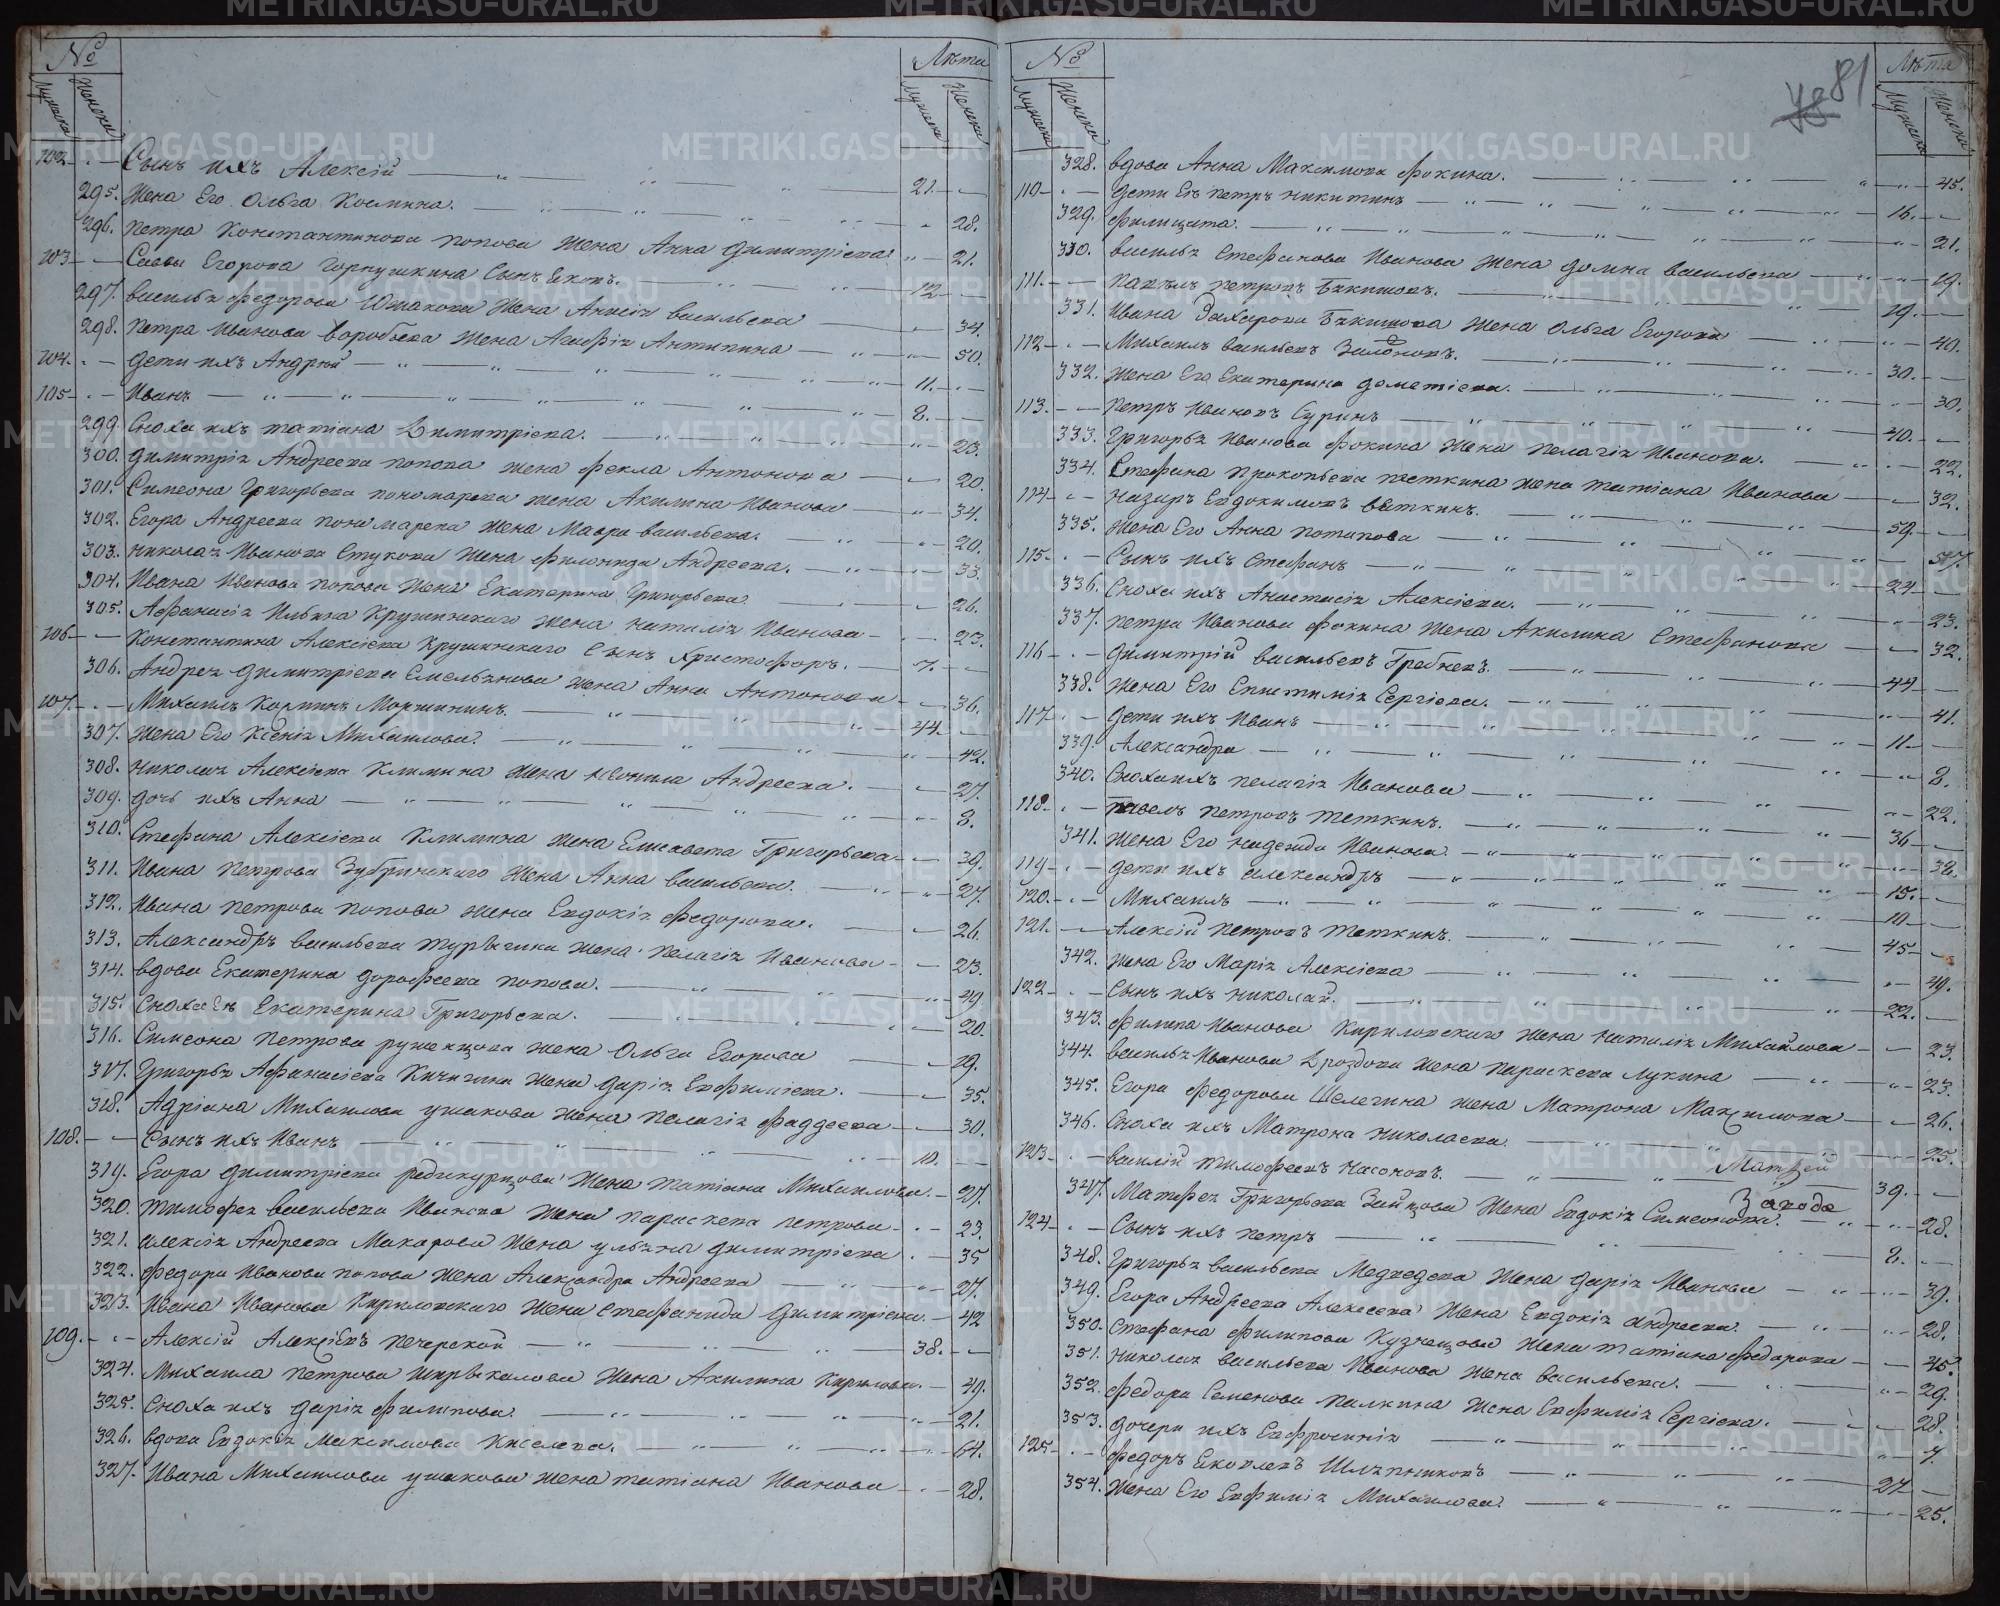 №
Мужска Женска
Лѣта
Мужска Женска
102 Сынъ ихъ Алексій 21.
295. Жена Его Ольга Космина. 28.
296. Петра Константинова Попова жена Анна Димитріева 21.
103 Саввы Егорова Горпушкина Сынъ Яковъ. 12
297. Василья Федорова Ушакова Жена Анисія Васильева 34.
298. Петра Иванова Воробьева Жена Агафія Антипина 50.
104. Дети ихъ Андрей 11.
105 Иванъ 8.
299. Сноха ихъ Татіана Димитріева. 23.
300. Димитрія Андреева Попова жена Фекла Антонова 20.
301. Симеона Григорьева Пономарева жена Акилина Иванова 34.
302. Егора Андреева Пономарева Жена Мавра Васильева. 20.
303. Николая Иванова Стукова Жена Филонида Андреева. 33.
304. Ивана Иванова Попова Жена Екатерина Григорьева 26.
305. Афанасія Ильина Крушинскаго Жена Наталія Иванова 23.
106 Константина Алексіева Крушинскаго Сынъ Христофоръ. 7.
306. Андрея Димитріева Емельянова жена Анна Антонова 36.
107. Михаилъ Козминъ Моршининъ. 44.
307. Жена Его Ксенія Михаилова. 42.
308. Николая Алексіева Климина Жена Неонила Андреева. 27.
309. Дочь ихъ Анна 8.
310. Стефана Алексіева Климина Жена Елисавета Григорьева 39.
311. Ивана Петрова Зубринскаго Жена Анна Васильева. 27.
312. Ивана Петрова Попова жена Евдокія Федорова. 26.
313. Александръ Васильева Турыгина Жена Пелагія Иванова 23.
314. Вдова Екатерина Дорофеева Попова. 49.
315. Сноха Ея Екатерина Григорьева. 20.
316. Симеона Петрова жена Ольга Егорова 29.
317. Григорья Афанасіева Кичигина Жена Дарія Евфиміева. 35.
318. Адріана Михаилова Ушакова жена Пелагія Фаддеева 30.
108. Сынъ ихъ Иванъ 10.
319. Егора Димитріева Редикурцова Жена Татіана Михаилова. 27.
320. Тимофея Васильева Иванова Жена Параскева Петрова 23.
321. Алексія Андреева Макарова Жена Ульяна Димитріева 35
322. Федора Иванова Попова Жена Александра Андреева 27.
323. Ивана Иванова Кириловскаго Жена Стефанида Димитріева. 42
109. Алексій Алексіевъ Печерской 38.
324. Михаила Петрова Шырыкалова Жена Акилина Кирилова. 49.
325. Сноха ихъ Дарія Филипова. 21.
326. Вдова Евдокія Максимова Киселева. 64.
327. Ивана Михаилова Ушакова жена Татіана Иванова 28.
№
Мужска Женска
78 81
Лѣта
Мужска Женска
328. Вдова Анна Максимова Фокина. 45.
110 Дети Ея Петръ Никитинъ 16.
329. Филицата. 21.
330. Василья Стефанова Иванова Жена Домна Васильева 19.
111. Павелъ Петровъ Бакшовъ. 29.
331. Ивана Захарова Бакшова Жена Ольга Егорова 40.
112 Михаилъ Васильевъ 30.
332. Жена Его Екатерина Дометіева. 30.
113. Петръ Ивановъ Суринъ 40.
333. Григорья Иванова Фокина Жена Пелагія Иванова. 22.
334. Стефана Прокопьева Теткина жена Татіана Иванова 32.
114 Назаръ Евдокимовъ Вяткинъ. 59.
335. Жена Его Анна Потапова 57.
115 Сынъ ихъ Стефанъ 24
336. Сноха ихъ Анастасія Алексіева. 23.
337. Петра Иванова Фокина Жена Акилина Стефанова 32.
116 Димитрій Васильевъ Гребневъ. 44
338. Жена Его Епистимія Сергіева. 41.
117. Дети ихъ Иванъ 11.
339. Александра 8.
340. Сноха ихъ Пелагія Иванова 22.
118. Павелъ Петровъ Теткинъ. 36
341. Жена Его Надежда Иванова. 32.
119 Дети ихъ Александръ 15.
120. Михаилъ 10
121. Алексій Петровъ Теткинъ. 45
342. Жена Его Марія Алексіева 49.
122 Сынъ ихъ Николай. 22.
343. Филипа Иванова Кириловскаго Жена Наталія Михайлова 23.
344. Василья Иванова Дроздова Жена Параскева Лукина 23.
345. Егора Федорова Шелегина жена Матрона Максимова 26.
346. Сноха ихъ Матрона Николаева. 25.
123 Василій Тимофеевъ Насоновъ. 39.
Матфей
3 года
347. Матфея Григорьева Зайцова Жена Евдокія Симеонова. 28.
124 Сынъ ихъ Петръ 8.
348. Григорья Васильева Медведева Жена Дарія Иванова 39.
349. Егора Андреева Алексеева Жена Евдокія Андреева. 28.
350. Стефана Филипова Кузнецова Жена Татіана Федорова 45.
351. Николая Васильева Иванова Жена Васильева. 29.
352. Федора Семенова Палкина Жена Евфимія Сергіева. 28.
353. Дочери ихъ Евфросинія 7.
125 Федоръ Яковлевъ Шляпниковъ 27
354. Жена Его Евфимія Михаилова. 25.